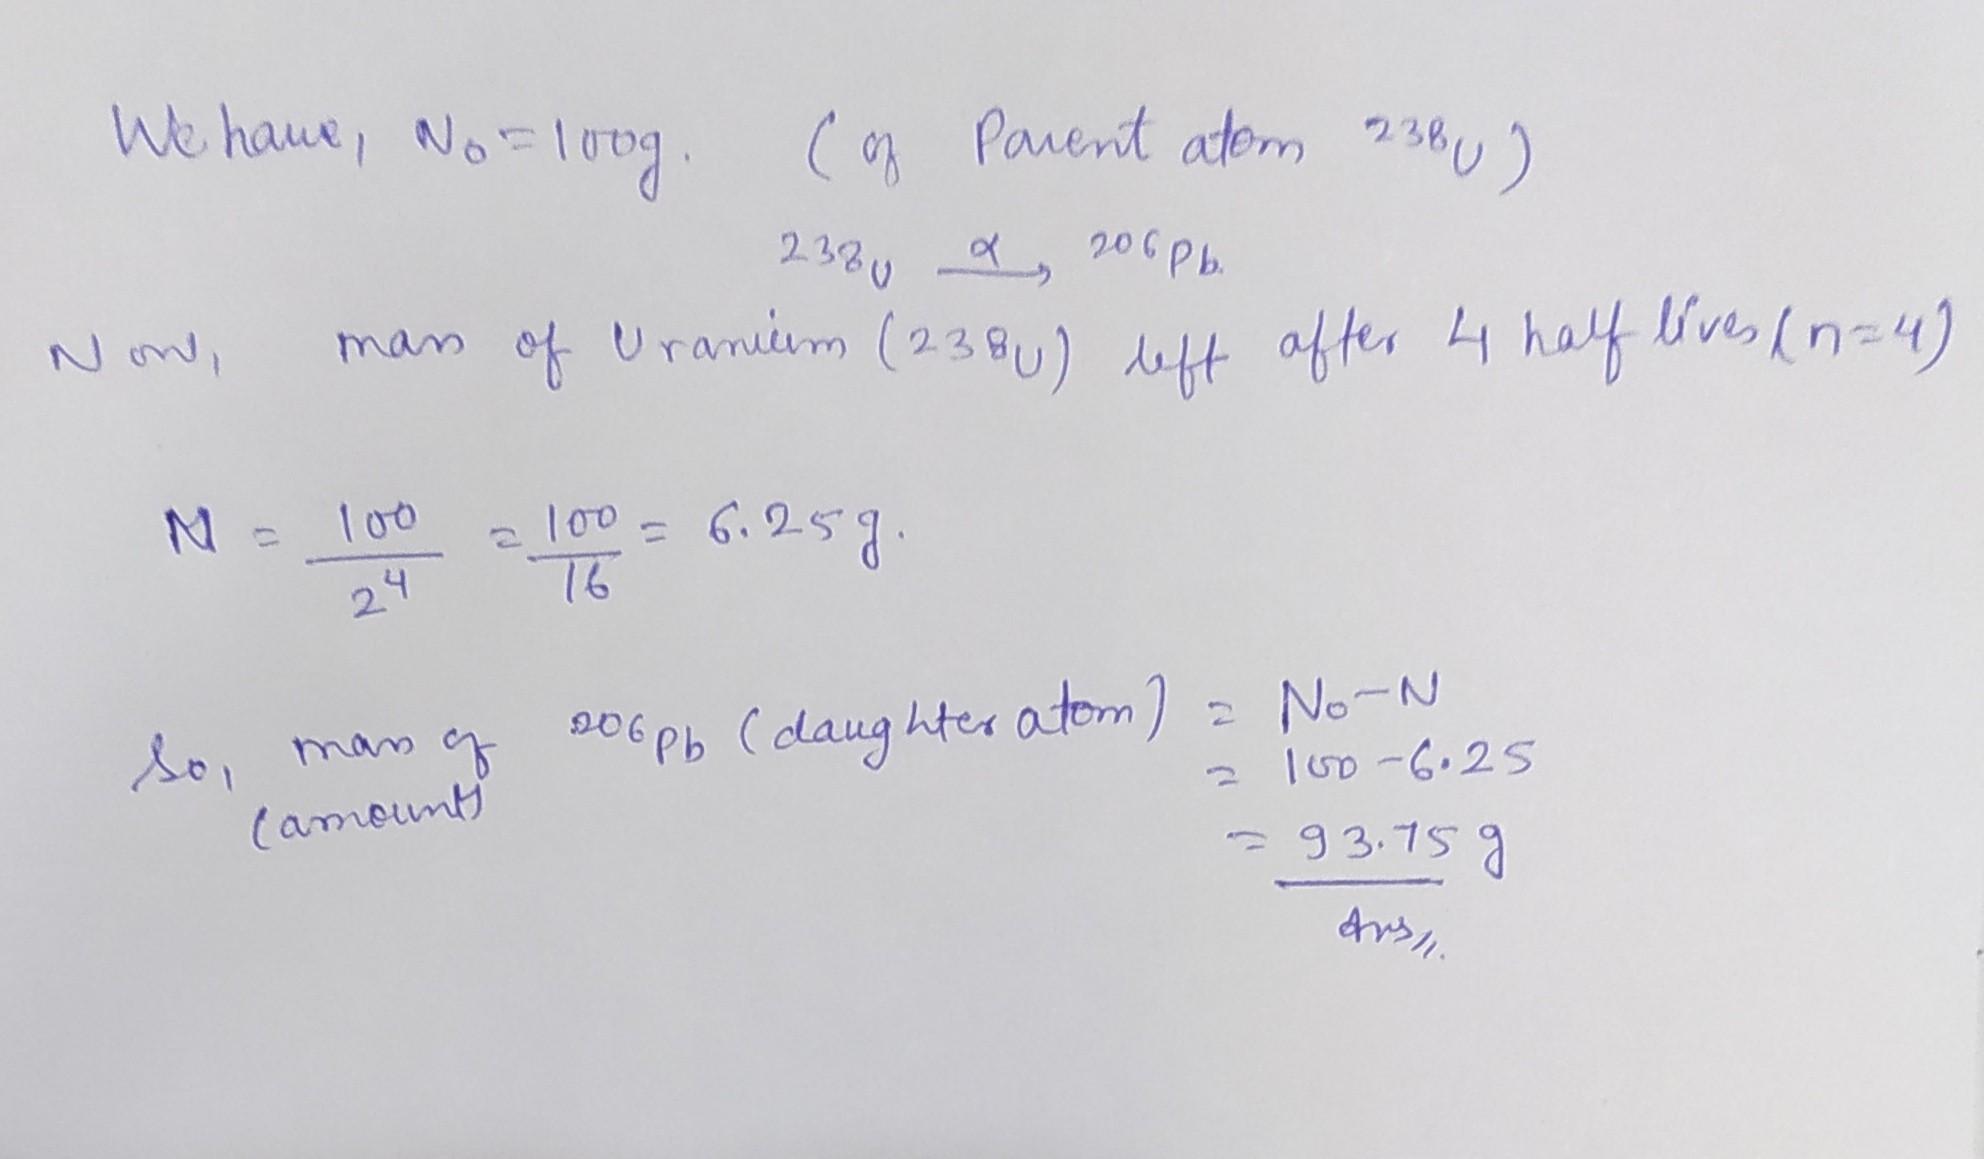 We have, N₀ = 100g. (of Parent atom ²³⁸U)
²³⁸U —α→ ²⁰⁶Pb.
Now, mass of Uranium (²³⁸U) left after 4 half lives (n=4)
N = 100/2⁴ = 100/16 = 6.25g.
So, mass of ²⁰⁶Pb (daughter atom) = N₀-N
(amount) = 100-6.25
= 93.75g
Ans //.